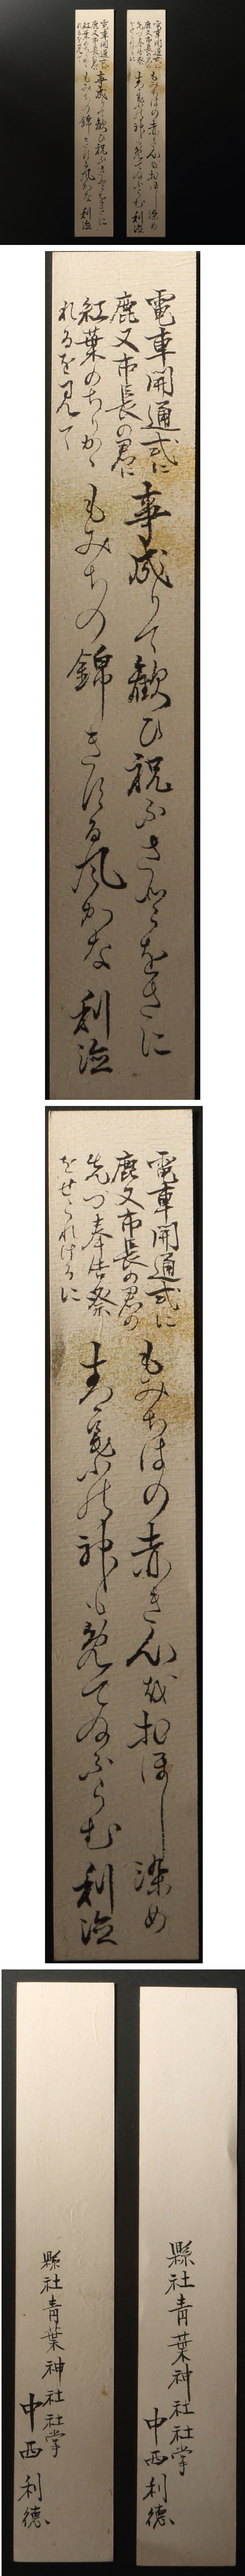 電車開通式に
鹿又市長の君に
紅葉のちりかゝ
れるを見て
事成りて歓ひ祝ふさ
をきに
もみちの錦きする風かな
利徳
電車開通式に
鹿又市長の君の
先つ奉告祭
をせられけるに
もみちはの赤き心をおほし染め
神も
らむ
利徳
縣社青葉神社社掌
中西利徳
縣社青葉神社社掌
中西利徳